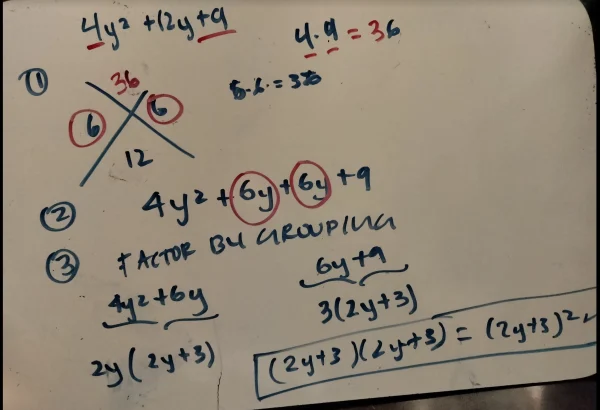 4y² + 12y + 9
4 · 9 = 36
① 36
6 6
12
② 4y² + 6y + 6y + 9
③ FACTOR BY GROUPING
4y² + 6y
6y + 9
2y(2y+3)
3(2y+3)
(2y+3)(2y+3) = (2y+3)²